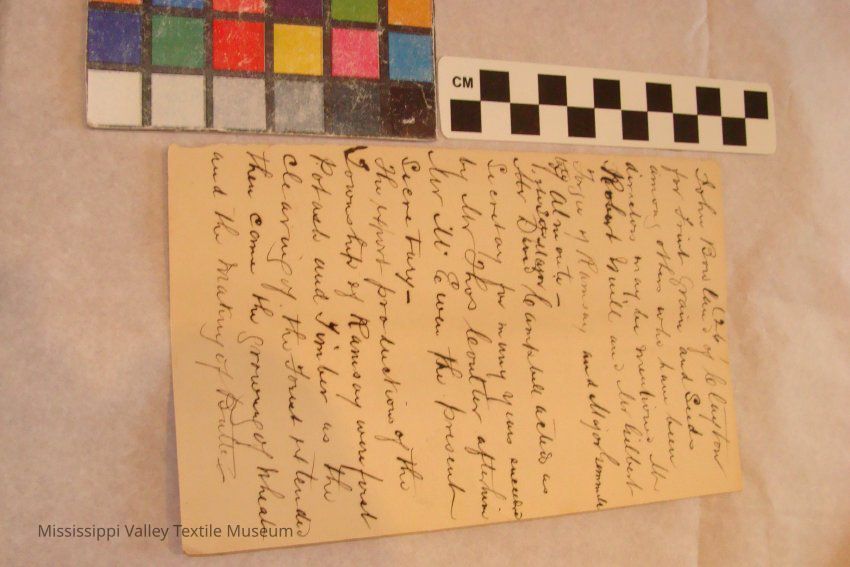 (26)
John Bowland of Clayton
for Fruit Grain and Seeds
among others who have been
directors may be mentioned Mr
Robert Neill and Mr Gilbert
of Ramsay and Major Gemmill
of Almonte –
Mr David Campbell acted as
Secretary for many years succeeded
by Mr Thos Coulter after him
Mr McEwen the present
Secretary –
The export productions of the
Township of Ramsay were first
Potash and Timber as the
clearing of the Forest extended
then came the growing of Wheat
and the making of Butter
CM
Mississippi Valley Textile Museum